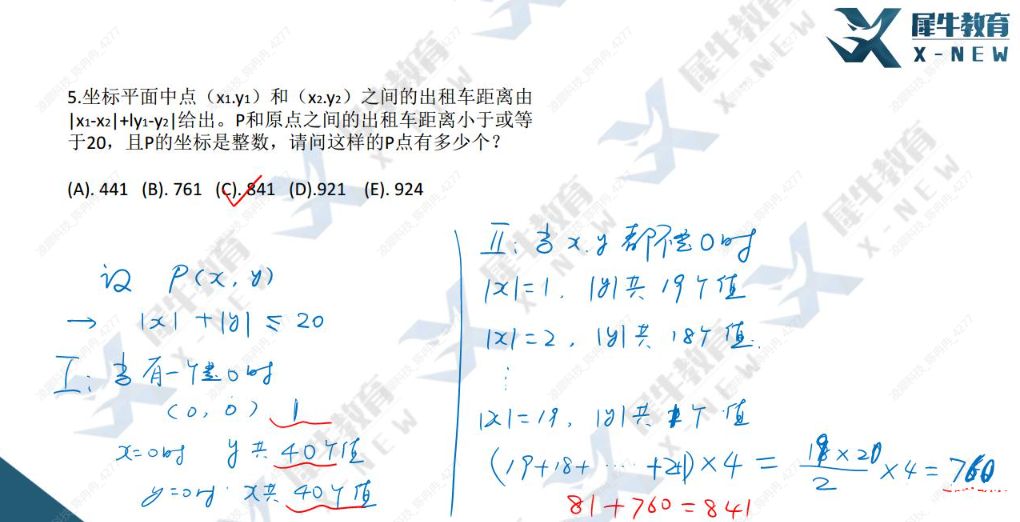 犀牛教育
X-NEW
5.坐标平面中点（x₁.y₁）和（x₂.y₂）之间的出租车距离由
|x₁-x₂|+ly₁-y₂|给出。P和原点之间的出租车距离小于或等
于20，且P的坐标是整数，请问这样的P点有多少个？
(A). 441 (B). 761 (C). 841 (D).921 (E). 924
设 P(x, y)
→ |x| + |y| ≤ 20
I: 当有一个是0时
(0, 0) 1
x=0时 y共40个值
y=0时 x共40个值
II: 当x.y都不是0时
|x|=1. |y|共19个值
|x|=2, |y|共18个值.
⋮
|x|=19, |y|共1个值
(19+18+ …… +2+1)×4 = 19×20/2 ×4 = 760
81+760=841